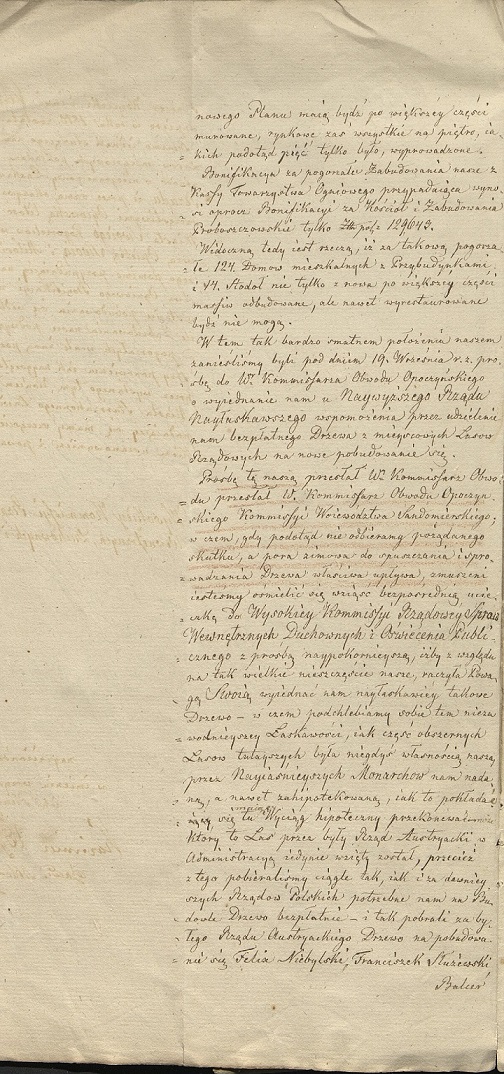 nowego Planu maią bydź po większéy części
murowane, rynkowe zaś wszystkie na piętro, ia-
kich podotąd pięć tylko było, wyprowadzone.
Bonifikacya za pogorzałe Zabudowania nasze z
Kassy Towarzystwa Ogniowego przypadaiąca wyno-
si oprócz Bonifikacyi za Kościoł i Zabudowania
Proboszczowskie tylko Złł: pols: 129643.
Widoczną tedy iest rzeczą, iż za takową pogorza-
łe 124. Domow mieszkalnych z Przybudynkami,
i 44. Stodoł nie tylko z nowa po większey części
massiv odbudowane, ale nawet wyrestaurowane
bydź nie mogą.
W tem tak bardzo smutnem położeniu naszem
zanieśliśmy byli pod dniem 19. Września r. z. pro-
śbę do W. Kommissarza Obwodu Opoczyńskiego
o wyiednanie nam u Naywyższego Rządu
Nayłaskawszego wspomożenia przez udzielenie
nam bezpłatnego Drzewa z mieyscowych Lasow
Rządowych na nowe pobudowanie się.
Prośbę tę naszą przesłał W. Kommissarz Obwo-
du przesłał W. Kommissarz Obwodu Opoczyn-
skiego Kommissyi Woiewodztwa Sandomierskiego,
w czem, gdy podotąd nie odbieramy pożądanego
skutku, a pora zimowa do spuszczania i spro-
wadzania Drzewa właściwa upływa, zmuszeni
iesteśmy ośmielić się wziąść bezpośrednią uciec-
zkę do Wysokiey Kommissyi Rządowey Spraw
Wewnętrznych Duchownych i Oświecenia Publi-
cznego z prośbą naypokornieyszą, iżby z względu
na tak wielkie nieszczęście nasze, raczyła Powa-
gą Swoią wyiednać nam nayłaskawiey takowe
Drzewo – w czem podchlebiamy sobie tem nieza-
wodnieyszey Łaskawości, iak część obszernych
Lasow tutayszych była niegdyś własnością naszą
przez Nayiaśnieyszych Monarchow nam nada-
ną, a nawet zahipotekowaną, iak to pokłada-
się tu Wyciąg hipoteczny przekonywa
który to Las przez były Rząd Austryacki w
Administracyą iedynie wzięty został, przecież
z tego pobieraliśmy ciągle tak, iak i za dawniey-
szych Rządow Polskich potrzebne nam na Bu-
dowle Drzewo bezpłatnie – i tak pobrali za by-
łego Rządu Austryackiego Drzewo na pobudowa-
nie się Felix Niebylski, Franciszek Służewski
Balcer